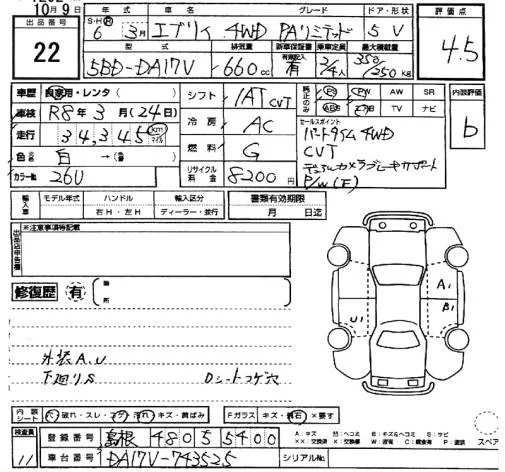 10月9日
出品番号
22
年式 車名 グレード ドア・形状
S・H・R 6年 3月 エブリイ 4WD PAリミテッド 5V
型式 排気量 新車保証書 乗車定員 最大積載量
5BD-DA17V 660cc 有 2/4人 350/250kg
評価点
4.5
車歴 自家用・レンタ シフト 1AT CVT
PS PW AW SR
ABS エアB TV ナビ
内装評価
b
車検 R8年3月(24日) 冷房 AC
セールスポイント
パートタイム4WD
CVT
デュアルカメラブレーキサポート
P/W(F)
走行 34,345 km マイル 燃料 G
色 白
カラーNo. 26U
リサイクル料金 8200円
輸入車 モデル年式 ハンドル 輸入区分 書類有効期限
年 右H・左H ディーラー・並行 月 日迄
※注意事項特記載
修復歴 有 箇所
A1
B1
U1
外装A.U
下廻りS Dシートコゲ穴
内装シート 破れ・スレ・コゲ・汚れ・キズ・黄ばみ Fガラス キズ・飛石・×要す
検査員
11
登録番号 島根 480 5 5400
車台番号 DA17V-743525 シリアルNo.
A:キズ U:ヘコミ B:キズ&ヘコミ S:サビ
XX:交換済 X:要交換 W:波有 C:腐食有 P:塗装
スペア